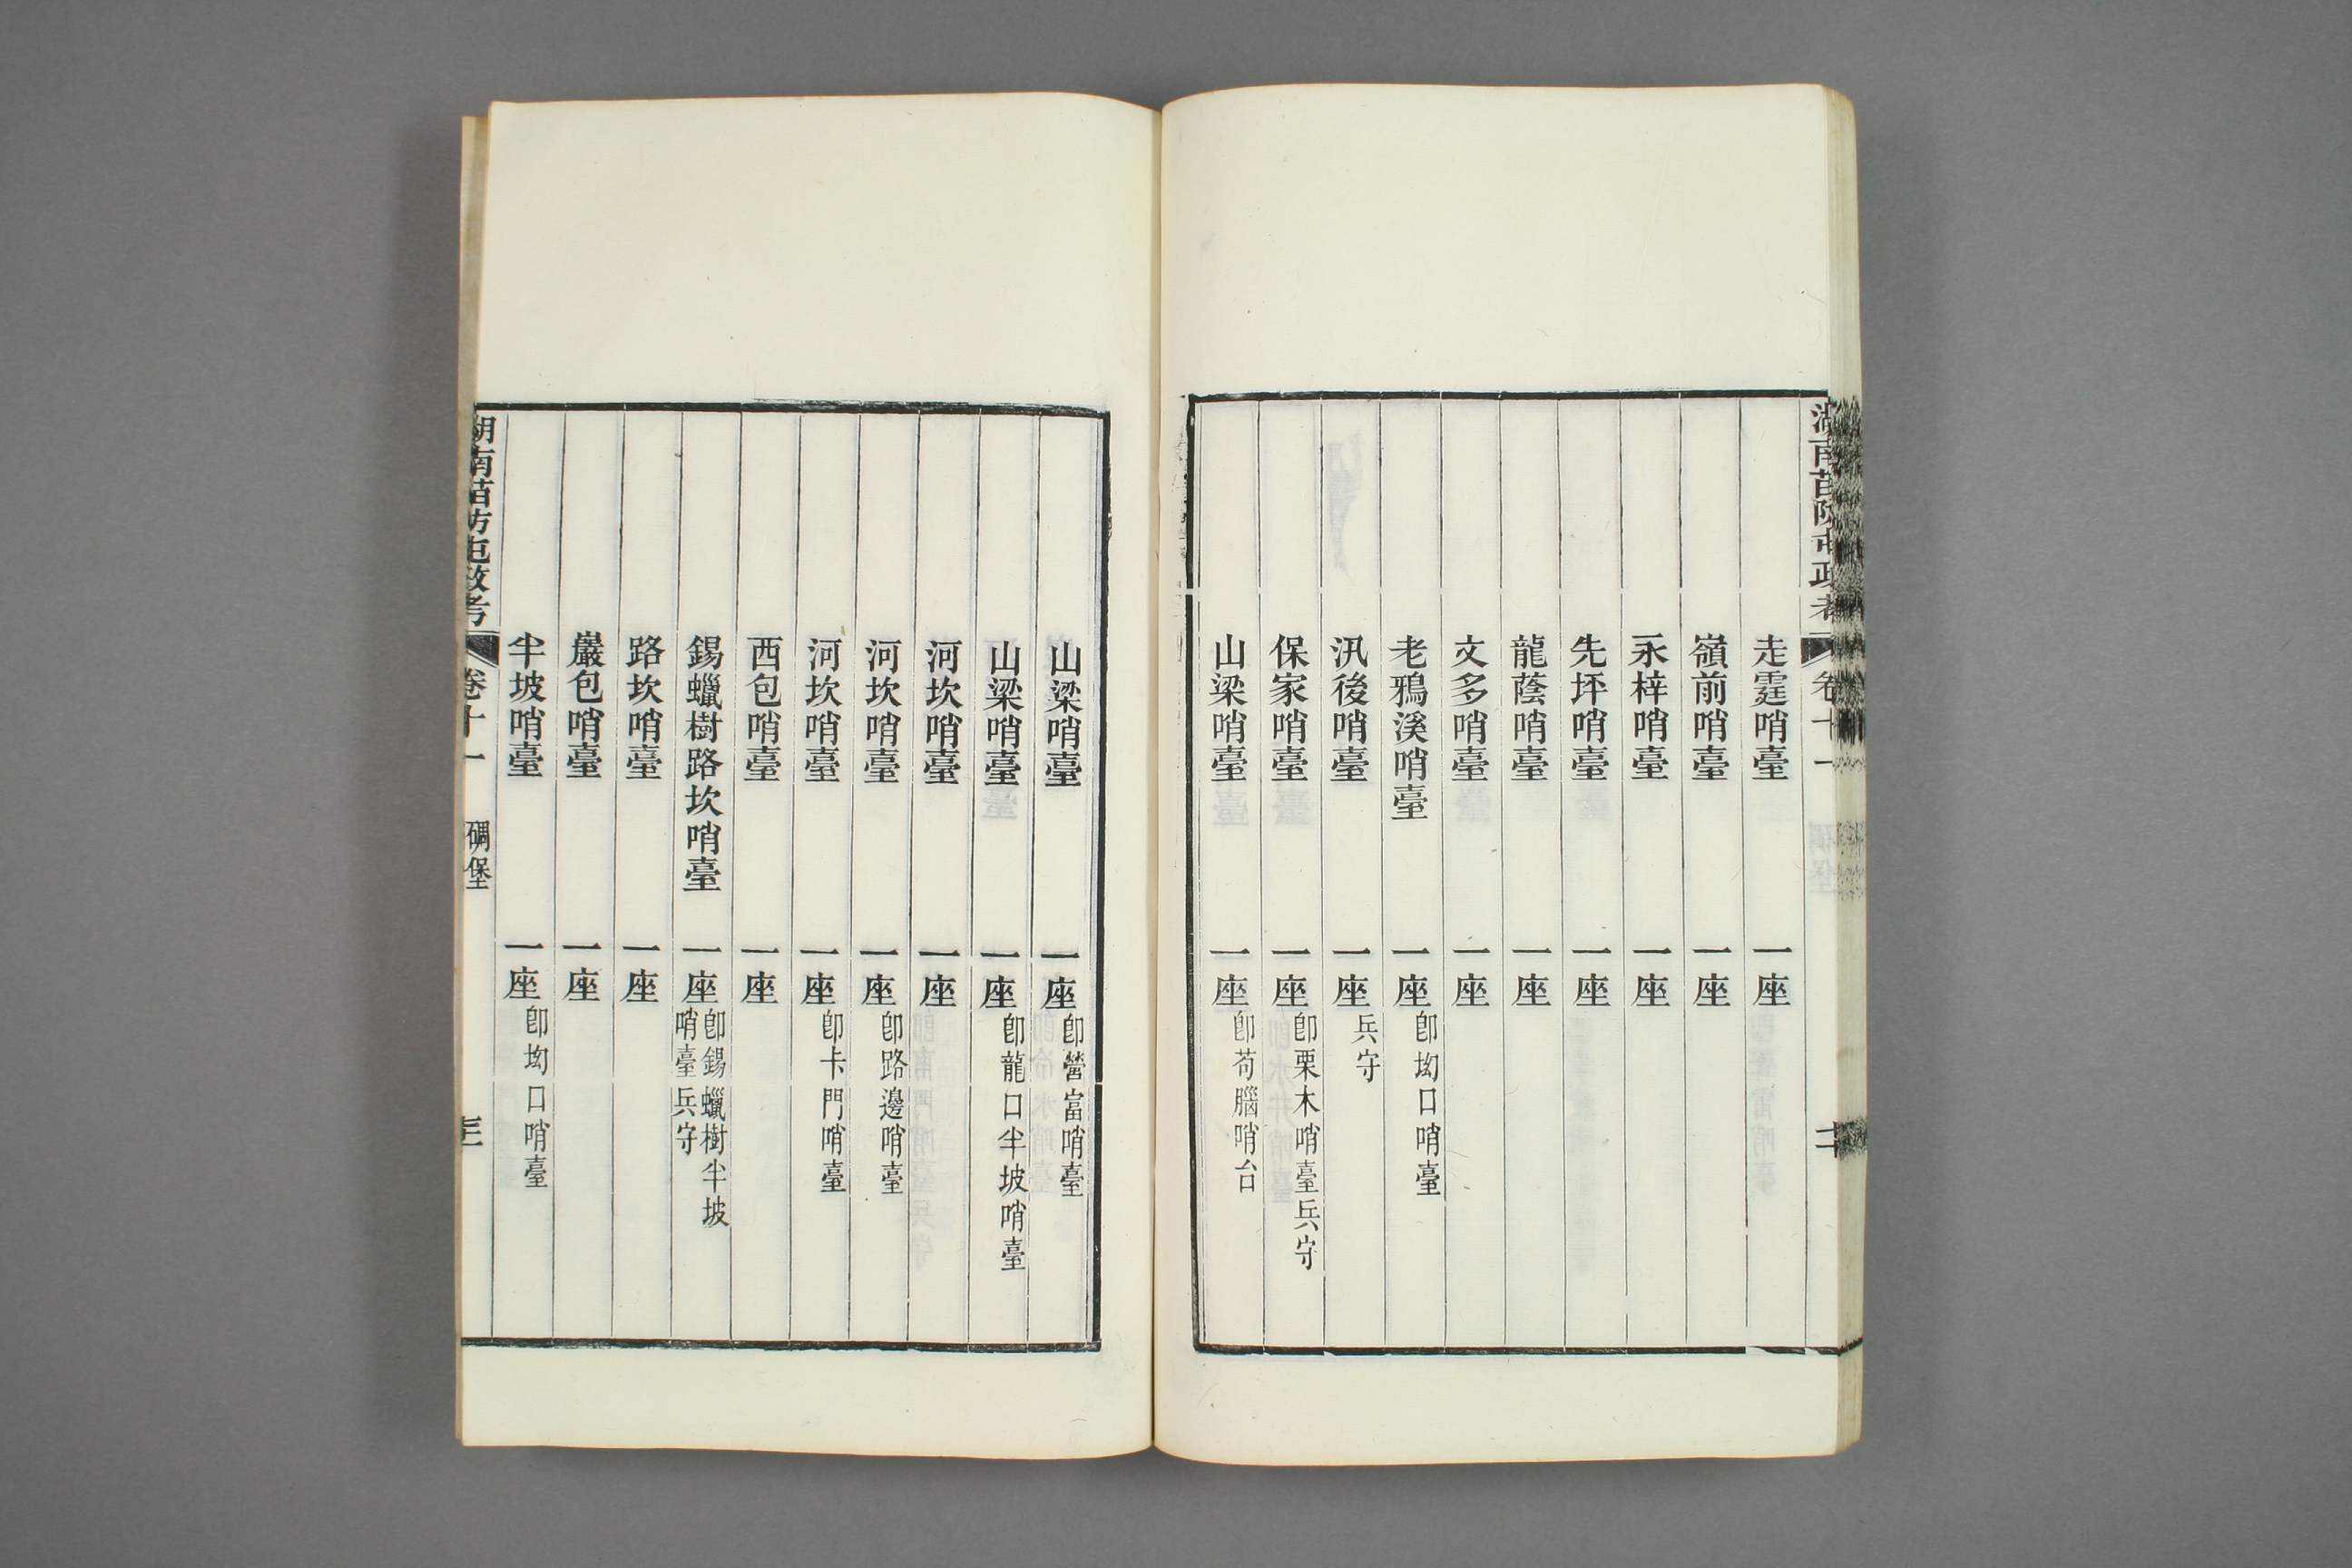 湖南苗防屯政考 卷十一
走霆哨臺 一座
嶺前哨臺 一座
永梓哨臺 一座
先坪哨臺 一座
龍蔭哨臺 一座
文多哨臺 一座
老鴉溪哨臺 一座 卽坳口哨臺
汛後哨臺 一座 兵守
保家哨臺 一座 卽栗木哨臺兵守
山梁哨臺 一座 卽苟腦哨台
山梁哨臺 一座 卽營當哨臺
山梁哨臺 一座 卽龍口半坡哨臺
河坎哨臺 一座
河坎哨臺 一座 卽路邊哨臺
河坎哨臺 一座 卽卡門哨臺
西包哨臺 一座
錫蠟樹路坎哨臺 一座 卽錫蠟樹半坡
哨臺兵守
路坎哨臺 一座
巖包哨臺 一座
半坡哨臺 一座 卽坳口哨臺
湖南苗防屯政考 卷十一 碉堡